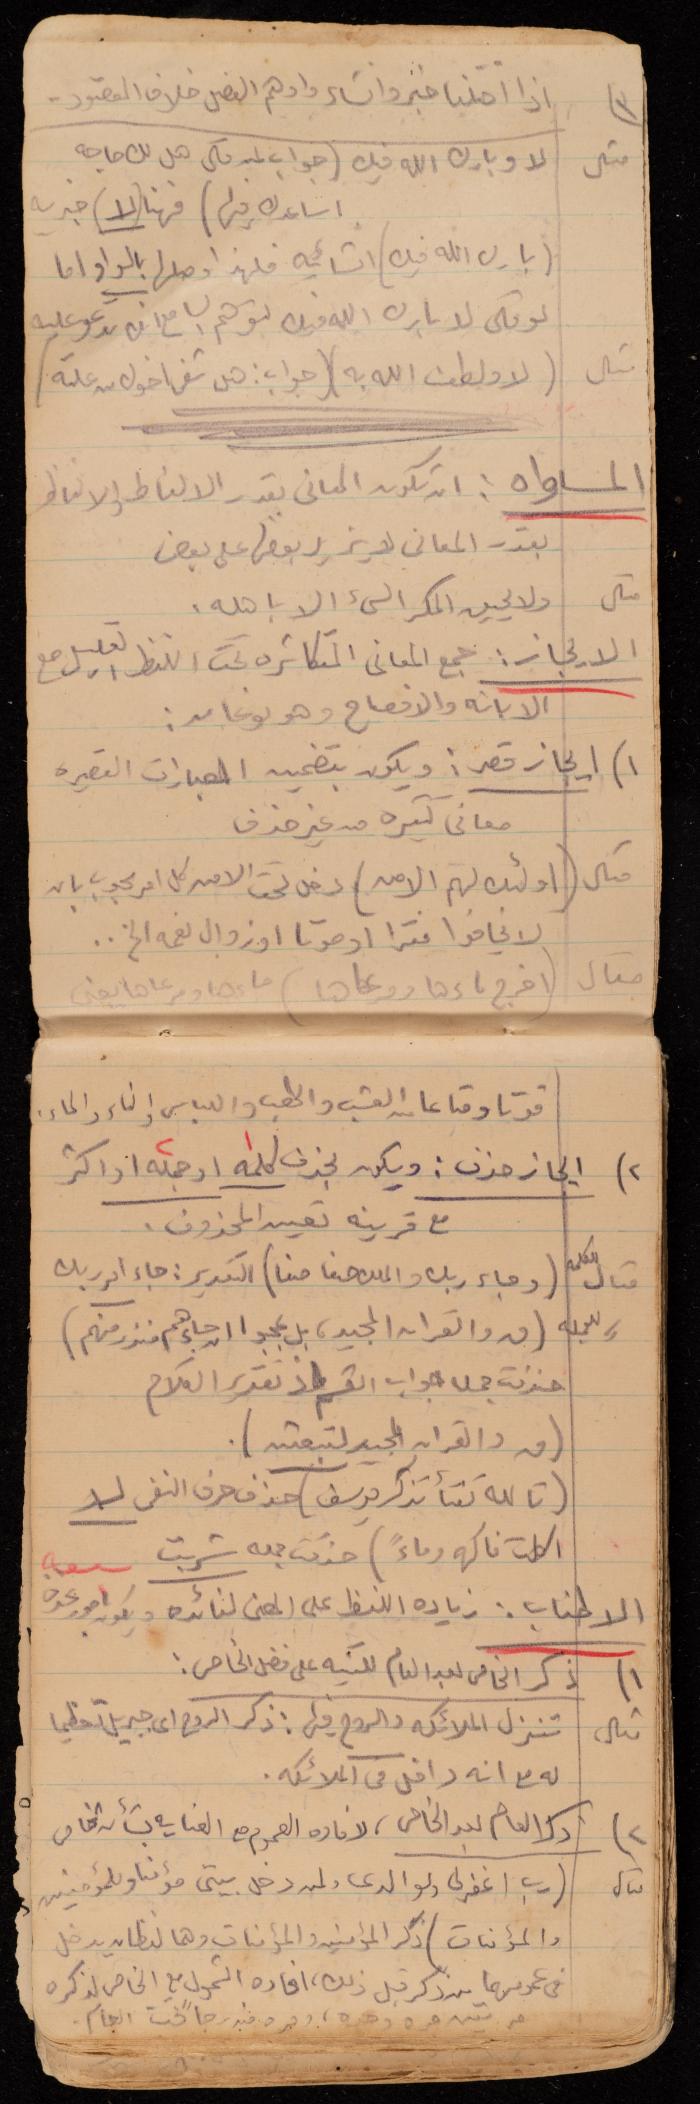 ٣) اذا اختلفا خبر وانشاء واوهم الفصل خلاف المقصود -
مثال لا وبارك الله فيك (جواب لمن قال هل لك حاجه
اساعدك فيها) فهنا (لا) خبريه
(بارك الله فيك) انشائيه فلهذا وصلها بالواو اما
لو قال لا بارك الله فيك لتوهم السامع انك تدعو عليه
مثال (لا ولطف الله به) (جواب: هل شفي اخوك من علته)
المساواه : ان تكون المعاني بقدر الالفاظ والالفاظ
بقدر المعاني لا يزيد بعضها على بعض
مثال ولا يحيق المكر السيء الا باهله .
الايجاز : جمع المعاني المتكاثره تحت اللفظ القليل مع
الابانه والافصاح وهو نوعان :
١) ايجاز قصر : ويكون بتضمين العبارات القصيره
معاني كثيره من غير حذف
مثال (اولئك لهم الامن) دخل تحت الامن كل امر محبوب بان
لا يخافوا فقرا او موتا او زوال نعمه الخ ..
مثال (اخرج ماءها ومرعاها) ماءها ومرعاها يعني
قوتا ومتاعا من العشب والحطب واللباس والنار والماء .
٢) ايجاز حذف : ويكون بحذف ١ كلمه او ٢ جمله او اكثر
مع قرينه تعين المحذوف .
مثال للكلمه (وجاء ربك والملك صفا صفا) التقدير : جاء امر ربك
وللجمله (ق والقران المجيد ، بل عجبوا ان جاءهم منذر منهم)
حذفت جمله جواب القسم اذ تقدير الكلام
(ق والقران المجيد لتبعثن) .
(تالله تفتأ تذكر يوسف) حذف حرف النفي لا
اكلت فاكهه وماءً) حذفت جمله شربت
الاطناب : زياده اللفظ على المعنى لفائده ويكون بامور عده
١) ذكر الخاص بعد العام للتنبيه على فضل الخاص :
مثال تتنزل الملائكه والروح فيها : ذكر الروح اي جبريل تعظيما
له مع انه داخل في الملائكه .
٢) ذكر العام بعد الخاص ، لافاده العموم مع العنايه بشأن الخاص
مثال (رب اغفر لي ولوالدي ولمن دخل بيتي مؤمنا وللمؤمنين
والمؤمنات) ذكر المؤمنين والمؤمنات وهما لفظان يدخل
في عمومهما من ذكر قبل ذلك ، افاده الشمول مع الخاص لذكره
مرتين مره وحده ، ومره مندرجاً تحت العام .